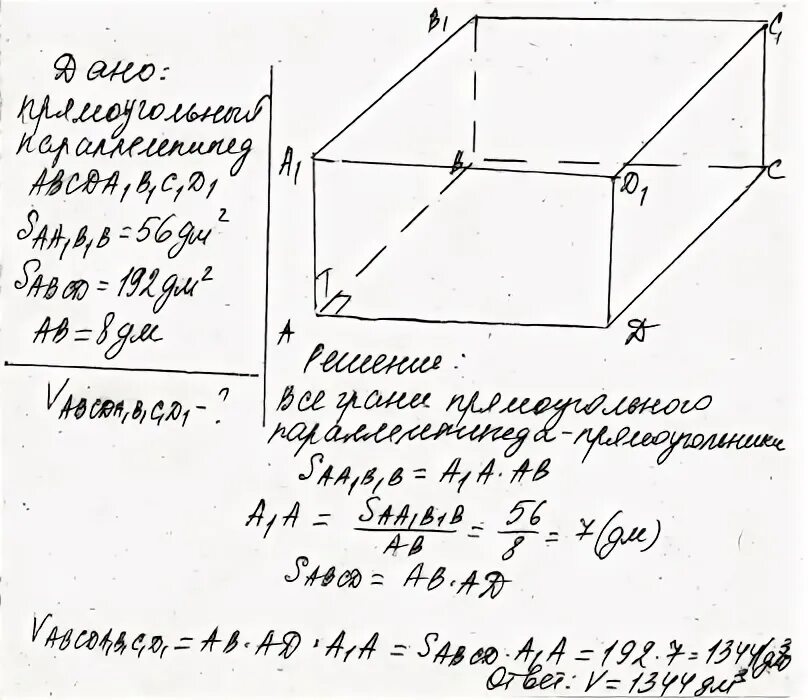 Дано:
прямоугольный
параллепипед
ABCDA₁B₁C₁D₁
S_{AA₁B₁B} = 56 дм²
S_{ABCD} = 192 дм²
AB = 8 дм
V_{ABCDA₁B₁C₁D₁} - ?
B₁
C₁
A₁
B
D₁
C
A
D
Решение:
Все грани прямоугольного
параллепипеда - прямоугольники
S_{AA₁B₁B} = A₁A · AB
A₁A = S_{AA₁B₁B} / AB = 56 / 8 = 7 (дм)
S_{ABCD} = AB · AD
V_{ABCDA₁B₁C₁D₁} = AB · AD · A₁A = S_{ABCD} · A₁A = 192 · 7 = 1344 (дм³)
Ответ: V = 1344 дм³